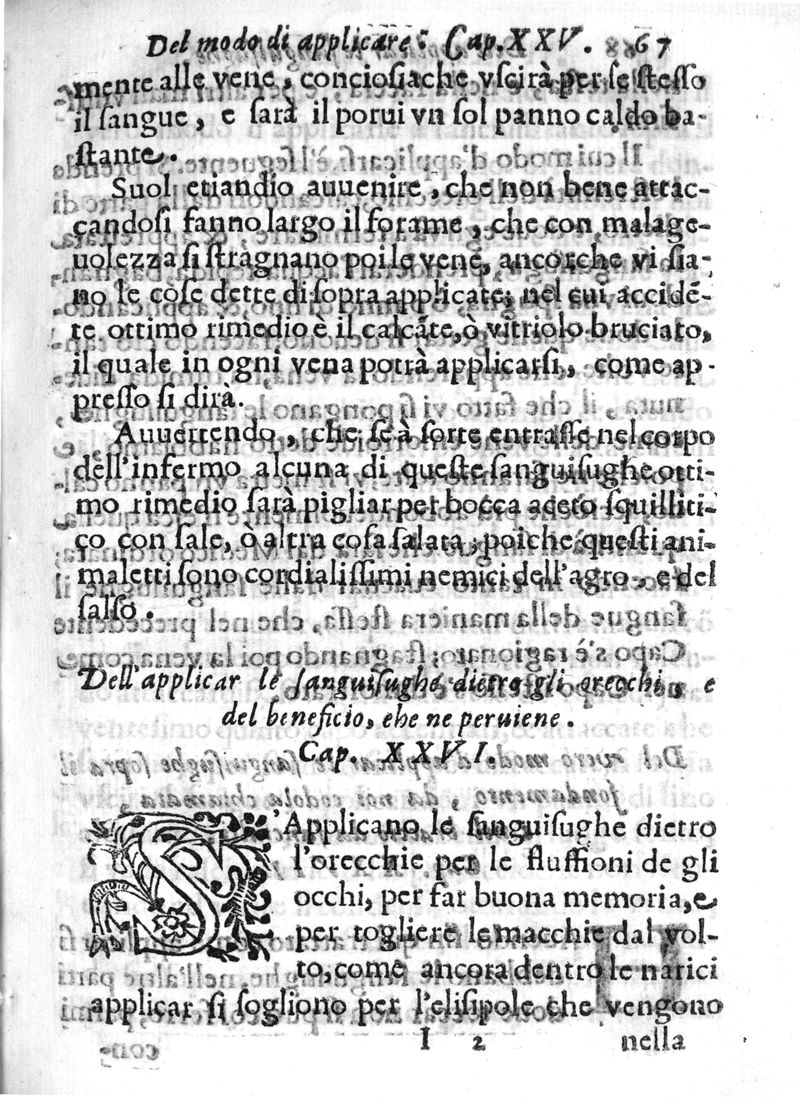 Del modo di applicare: Cap. XXV. 67
mente alle vene, conciosiache vscirà per se stesso
il sangue, e sarà il porui vn sol panno caldo ba-
stante.
Suol etiandio auuenire, che non bene attac-
candosi fanno largo il forame, che con malage-
uolezza si stragnano poi le vene, ancorche vi sia-
no le cose dette di sopra applicate; nel cui accidẽ-
te ottimo rimedio è il calcãte, ò vitriolo bruciato,
il quale in ogni vena potrà applicarsi, come ap-
presso si dirà.
Auuertendo, che se à sorte entrasse nel corpo
dell'infermo alcuna di queste sanguisughe otti-
mo rimedio sarà pigliar per bocca aceto squilliti-
co con sale, ò altra cosa salata; poiche questi ani-
maletti sono cordialissimi nemici dell'agro, e del
salso.
Dell'applicar le sanguisughe dietro gli orecchi, e
del beneficio, che ne peruiene.
Cap. XXVI.
S'Applicano le sanguisughe dietro
l'orecchie per le flussioni de gli
occhi, per far buona memoria, e
per togliere le macchie dal vol-
to, come ancora dentro le narici
applicar si sogliono per l'elisipole che vengono
I 2 nella